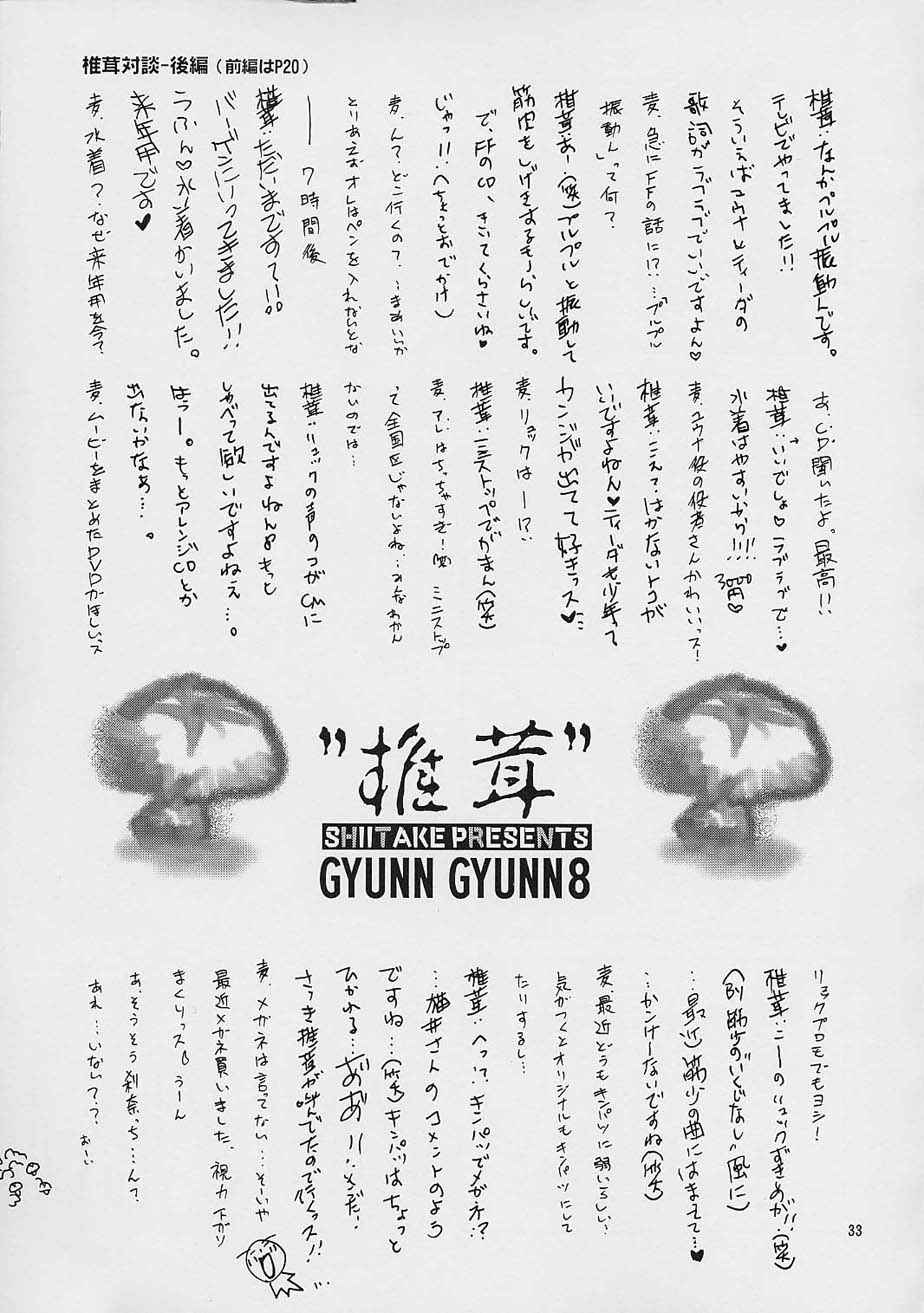 椎茸対談-後編（前編はP20）
椎茸：なんかプルプル振動んです。
テレビでやってました!!
そういえばユウナとティーダの
歌詞がラブラブでいいですよん♡
麦、急にFFの話に!?…プルプル
振動んって何？
椎茸：あー(笑)プルプルと振動して
筋肉をしげきするモノらしいです。
で、FFのCD、きいてくらさいね♥
じゃっ!!(ちょっとおでかけ)
麦、んて？どこ行くの？…まあいいか
とりあえずオレはペンを入れないとな
── 7時間後
椎茸：ただいまですてー!!。
バーゲンにいってきました!!
うふん♡水着かいました。
来年用です♥
麦、水着？なぜ来年用を今？
あ、CD聞いたよ。最高!!
椎茸：いいでしょ♡ラブラブで…♥
水着はやすいから!!!! 3000円♡
麦、ユウナ役の役者さんかわいいっス！
椎茸：こえて？はかないトコが
いいですよねん♡ティーダも少年って
カンジが出てて好きっス♥…
麦：リュックはー!?
椎茸：ミニストップでがまん(笑)
麦、アレはちっちゃすぎ！(笑) ミニストップ
って全国区じゃないよね…みなわかん
ないのでは…
椎茸：リュックの声のコがCMに
出てるんですよねん♪もっと
しゃべって欲しいですよねえ…。
はうー。もっとアレンジCDとか
出ないかなぁ…。
麦、ムービーをまとめたDVDがほしいっス
"椎茸"
SHIITAKE PRESENTS
GYUNN GYUNN8
リュックプロモでもヨシ！
椎茸：こーのリュックずきめが!!(笑)
(筋少の"いくじなし"風に)
…最近筋少の曲にはまえて…♥
…かんけーないですね(笑)
麦、最近どうもキンパツに弱いらしい…
気がつくとオリジナルもキンパツにして
たりするし…
椎茸：へっ!?キンパツでメガネ!?
…猫井さんのコメントのよう
ですね…(笑)キンパツはちょっと
ひかれる…あ゛あ゛!!…メだ！
さっき椎茸が叫んでたので行くっス!!…
麦、メガネは言ってない…そーいや
最近メガネ買いました、視力下がり
まくりっス うーん
あ、そうそう刹奈っち…ん？
あれ…いない？？ おーい
33